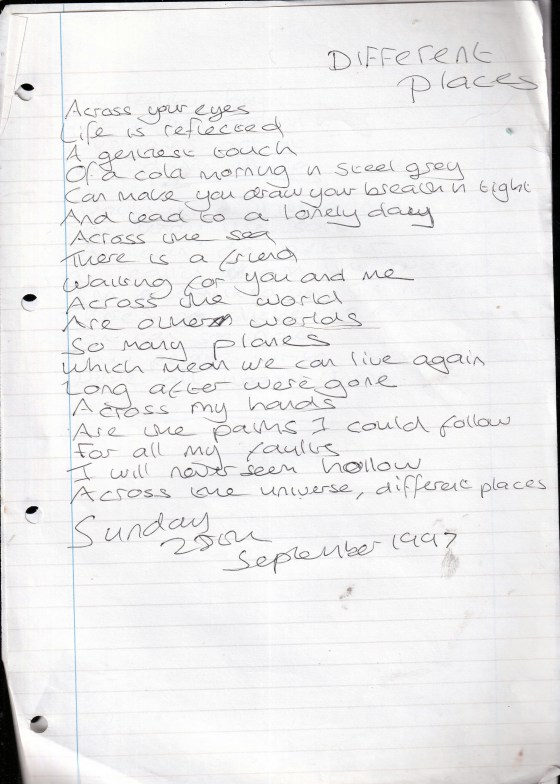 Different
Places
Across your eyes
Life is reflected
A gentlest touch
Of a cold morning in steel grey
Can make you draw your breath in tight
And lead to a lonely day
Across the sea
There is a friend
Waiting for you and me
Across the world
Are other worlds
So many planes
Which mean we can live again
Long after were gone
Across my hands
Are the paths I could follow
For all my faults
I will never seem hollow
Across the universe, different places
Sunday
28th
September 1997